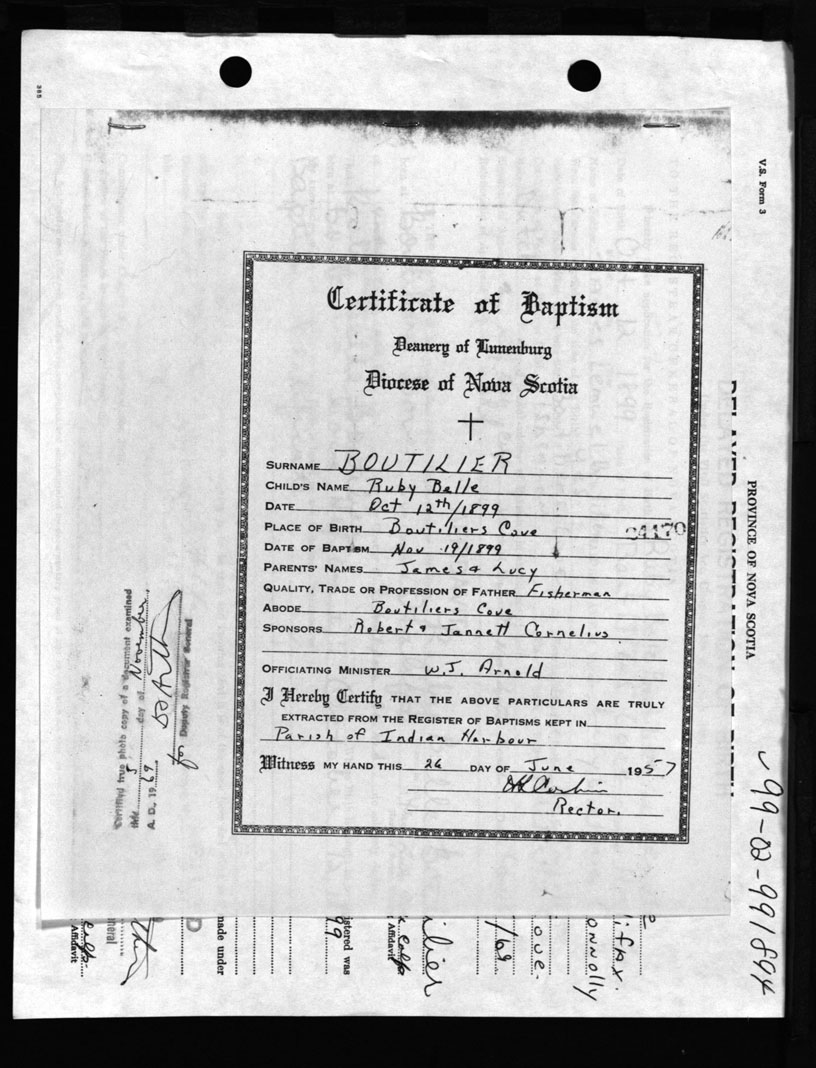 Certificate of Baptism
Deanery of Lunenburg
Diocese of Nova Scotia
SURNAME BOUTILIER
CHILD'S NAME Ruby Belle
DATE Oct 12th/1899
PLACE OF BIRTH Boutiliers Cove
24170
DATE OF BAPTISM Nov 19/1899
PARENTS' NAMES James & Lucy
QUALITY, TRADE OR PROFESSION OF FATHER Fisherman
ABODE Boutiliers Cove
SPONSORS Robert & Jannett Cornelius.
OFFICIATING MINISTER W.J. Arnold
I Hereby Certify THAT THE ABOVE PARTICULARS ARE TRULY
EXTRACTED FROM THE REGISTER OF BAPTISMS KEPT IN
Parish of Indian Harbour
Witness MY HAND THIS 26 DAY OF June 1957
Rector.
Certified true photo copy of a document examined
this 5 day of November
A. D., 1969
Deputy Registrar General
385
V.S. Form 3
PROVINCE OF NOVA SCOTIA
DELAYED REGISTRATION OF BIRTH
99-02-991894
made under
istered was
99
Affidavit
ilier
/69
ove.
onnolly
ifax.
neral
Affidavit